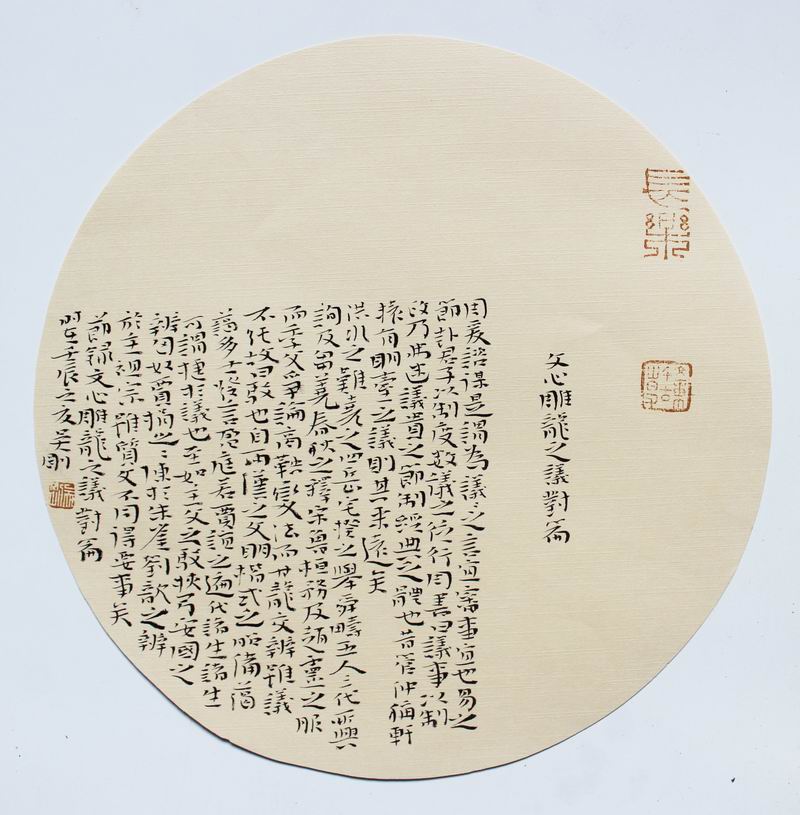 長樂
文心雕龍之議對篇
周爰諮謀是謂為議々之言宜審事宜也易之
節卦君子以制度數議之德行周書曰議事以制
政乃弗迷議貴之節制經典之體也昔管仲稱軒
轅有明臺之議則其来遠矣
洪水之難堯之四岳宅揆之舉舜疇五人三代所興
詢及芻蕘春秋之釋宋魯桓務及趙靈之服
而季父爭論商鞅變法而甘龍交辨雖議
不純故曰駁也自兩漢之文明楷式之昭備藹
藹多士發言盈庭若賈誼之遍代諸生諸生
可謂捷於議也至如主父之駁挾弓安國之
辨匈奴賈捐之之陳於朱崖劉歆之辨
於主祖宗雖質文不同得要事矣
節録文心雕龍之議對篇
時在壬辰之夏吴剛